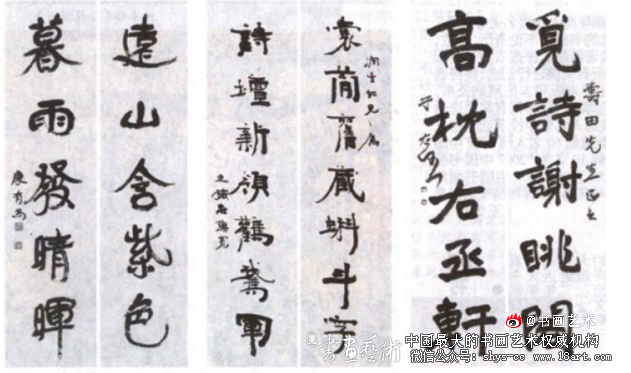 壽田先生正之
覓詩謝眺
高枕右丞軒
于右任
潤生仁兄屬
舊藏蝌斗字
詩壇新領鸛鵞軍
遠山含紫色
暮雨發晴暉
康有為
書畫藝術
@书画艺术
中国最大的书画艺术权威机构
微信公众号: shys-cc www.18art.com